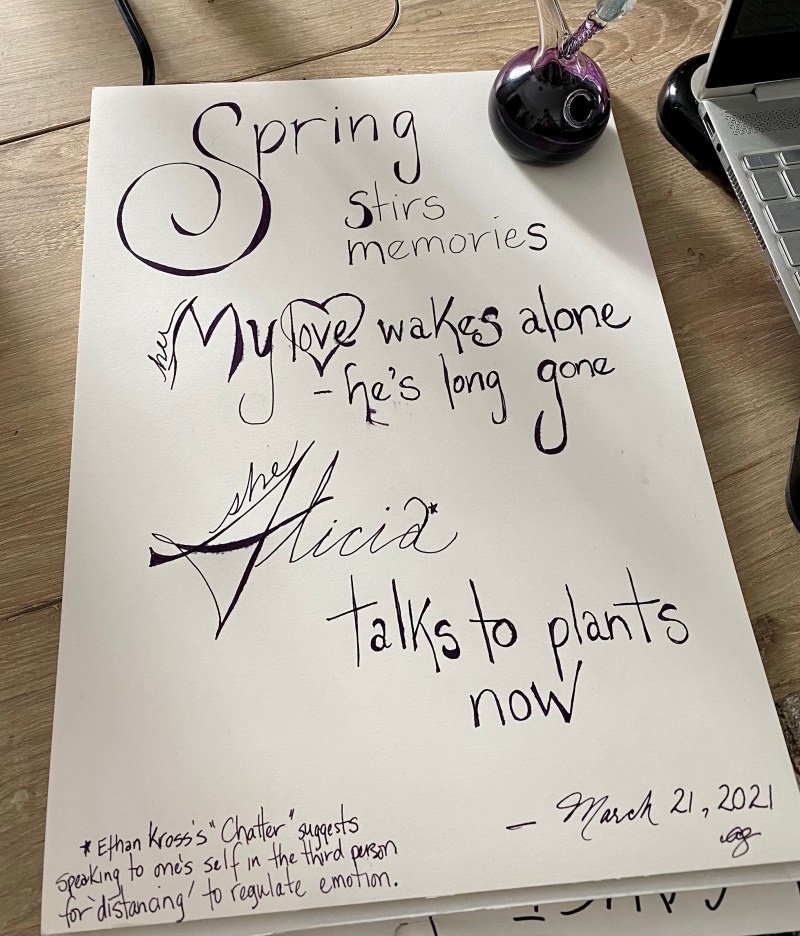 Spring
stirs
memories
her
My love wakes alone
- he's long gone
she
Alicia*
talks to plants
now
* Ethan Kross's "Chatter" suggests
speaking to one's self in the third person
for 'distancing' to regulate emotion.
- March 21, 2021